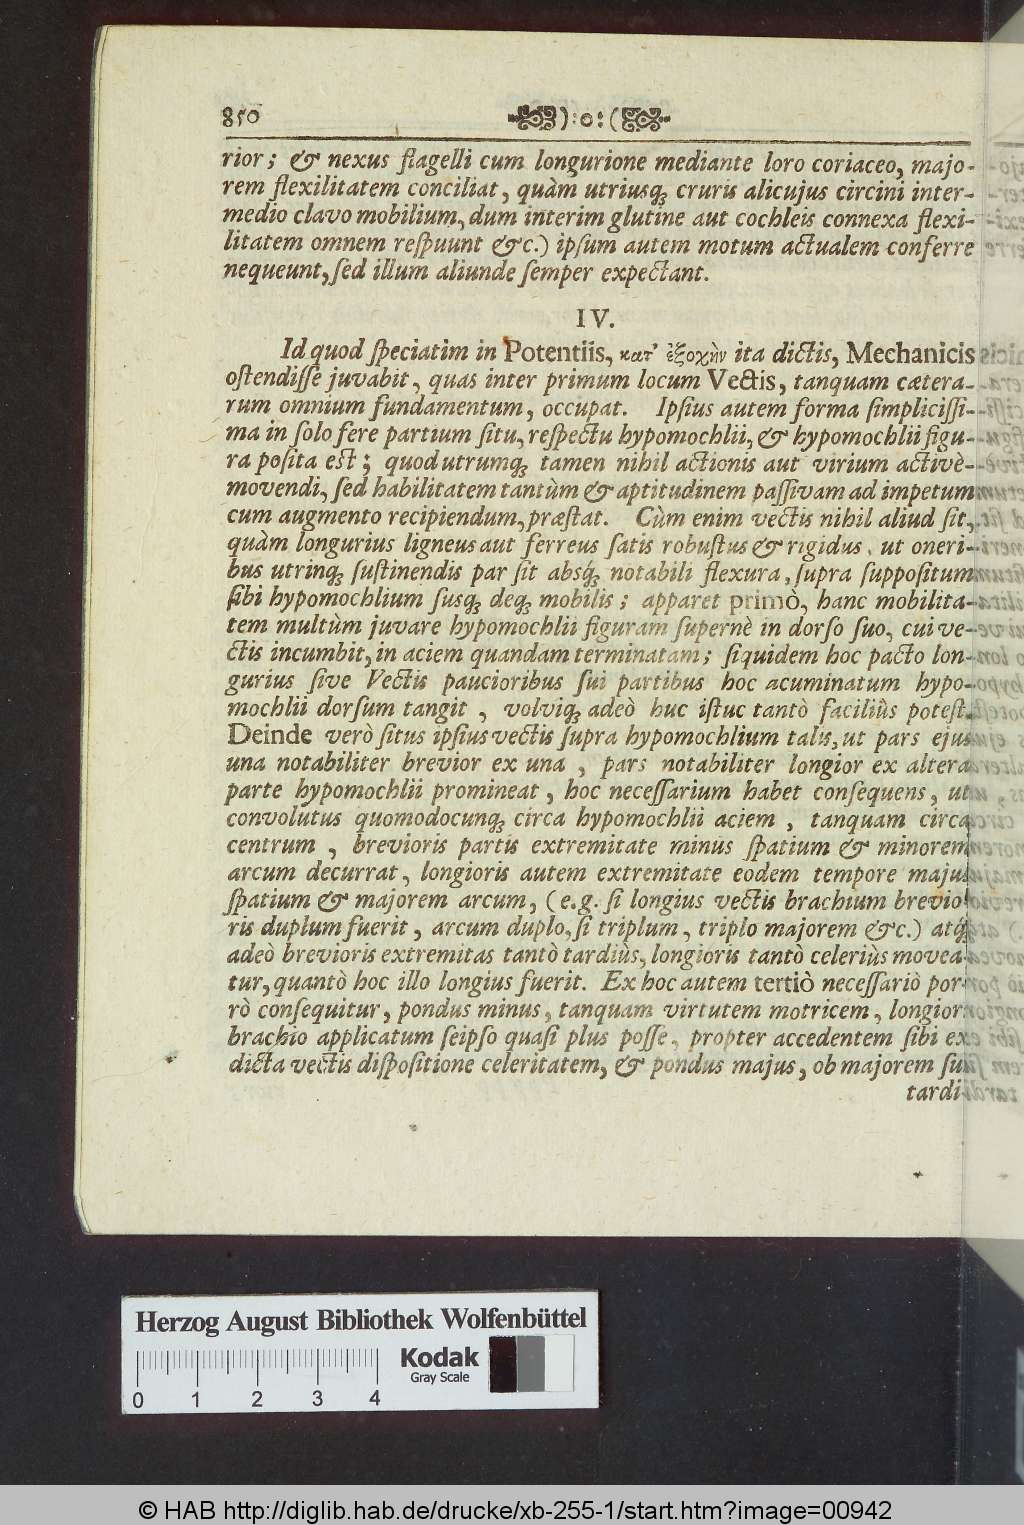 850 ):o:(
rior; & nexus flagelli cum longurione mediante loro coriaceo, majo-
rem flexilitatem conciliat, quàm utriusqꝫ cruris alicujus circini inter-
medio clavo mobilium, dum interim glutine aut cochleis connexa flexi-
litatem omnem reſpuunt &c.) ipſum autem motum actualem conferre
nequeunt, ſed illum aliunde ſemper expectant.
IV.
Id quod ſpeciatim in Potentiis, κατ' ἐξοχὴν ita dictis, Mechanicis
oſtendiſſe juvabit, quas inter primum locum Vectis, tanquam cætera-
rum omnium fundamentum, occupat. Ipſius autem forma ſimpliciſſi-
ma in ſolo fere partium ſitu, reſpectu hypomochlii, & hypomochlii figu-
ra poſita eſt; quod utrumqꝫ tamen nihil actionis aut virium activè-
movendi, ſed habilitatem tantùm & aptitudinem paſſivam ad impetum
cum augmento recipiendum, præſtat. Cùm enim vectis nihil aliud ſit,
quàm longurius ligneus aut ferreus ſatis robuſtus & rigidus, ut oneri-
bus utrinqꝫ ſuſtinendis par ſit absqꝫ́ notabili flexura, ſupra ſuppoſitum
ſibi hypomochlium ſusqꝫ deqꝫ mobilis; apparet primò, hanc mobilita-
tem multùm juvare hypomochlii figuram ſupernè in dorſo ſuo, cui ve-
ctis incumbit, in aciem quandam terminatam; ſiquidem hoc pacto lon-
gurius ſive Vectis paucioribus ſui partibus hoc acuminatum hypo-
mochlii dorſum tangit, volviqꝫ adeò huc iſtuc tantò faciliùs poteſt.
Deinde verò ſitus ipſius vectis ſupra hypomochlium talis, ut pars ejus
una notabiliter brevior ex una, pars notabiliter longior ex altera
parte hypomochlii promineat, hoc neceſſarium habet conſequens, ut
convolutus quomodocunqꝫ circa hypomochlii aciem, tanquam circa
centrum, brevioris partis extremitate minus ſpatium & minorem
arcum decurrat, longioris autem extremitate eodem tempore majus
ſpatium & majorem arcum, (e.g. ſi longius vectis brachium brevio
ris duplum fuerit, arcum duplo, ſi triplum, triplo majorem &c.) atqꝫ́
adeò brevioris extremitas tantò tardiùs, longioris tantò celeriùs movea-
tur, quantò hoc illo longius fuerit. Ex hoc autem tertiò neceſſariò por-
rò conſequitur, pondus minus, tanquam virtutem motricem, longiori
brachio applicatum ſeipſo quaſi plus poſſe, propter accedentem ſibi ex
dicta vectis diſpoſitione celeritatem, & pondus majus, ob majorem ſui
tardi-
Herzog August Bibliothek Wolfenbüttel
Kodak
Gray Scale
0 1 2 3 4
© HAB http://diglib.hab.de/drucke/xb-255-1/start.htm?image=00942